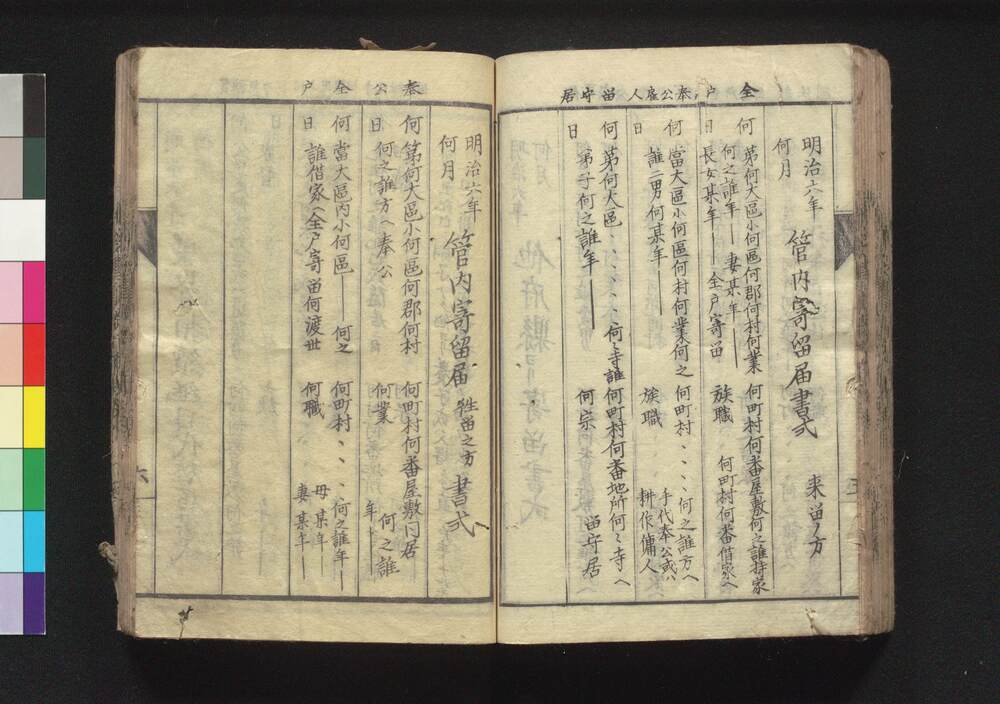 全戸 奉公雇人 留守居
明治六年
何月
管内寄留届書式 来留ノ方
何日 第何大區小何區何郡何村何業 何町村何番屋敷何之誰持家
何之誰年 妻某年
長女某年 全戸寄留 族職 何町村何番借家ヘ
何日 當大區小何區何村何業何之 何町村、、、何之誰方ヘ
誰二男何某年 族職 手代奉公或ハ
耕作傭人
何日 第何大區、、、、、何々寺誰 何町村何番地所何々寺ヘ
弟子何之誰年 何宗 留守居
奉公 全戸
明治六年
何月
管内寄留届 徃留之方 書式
何日 第何大區小何區何郡何村 何町村何番屋敷同居
何之誰方ヘ奉公 何業 何之誰
年
何日 當大區内小何區 何之 何町村、、、何之誰年
誰借家ヘ全戸寄留何渡世 何職 母某年
妻某年
六